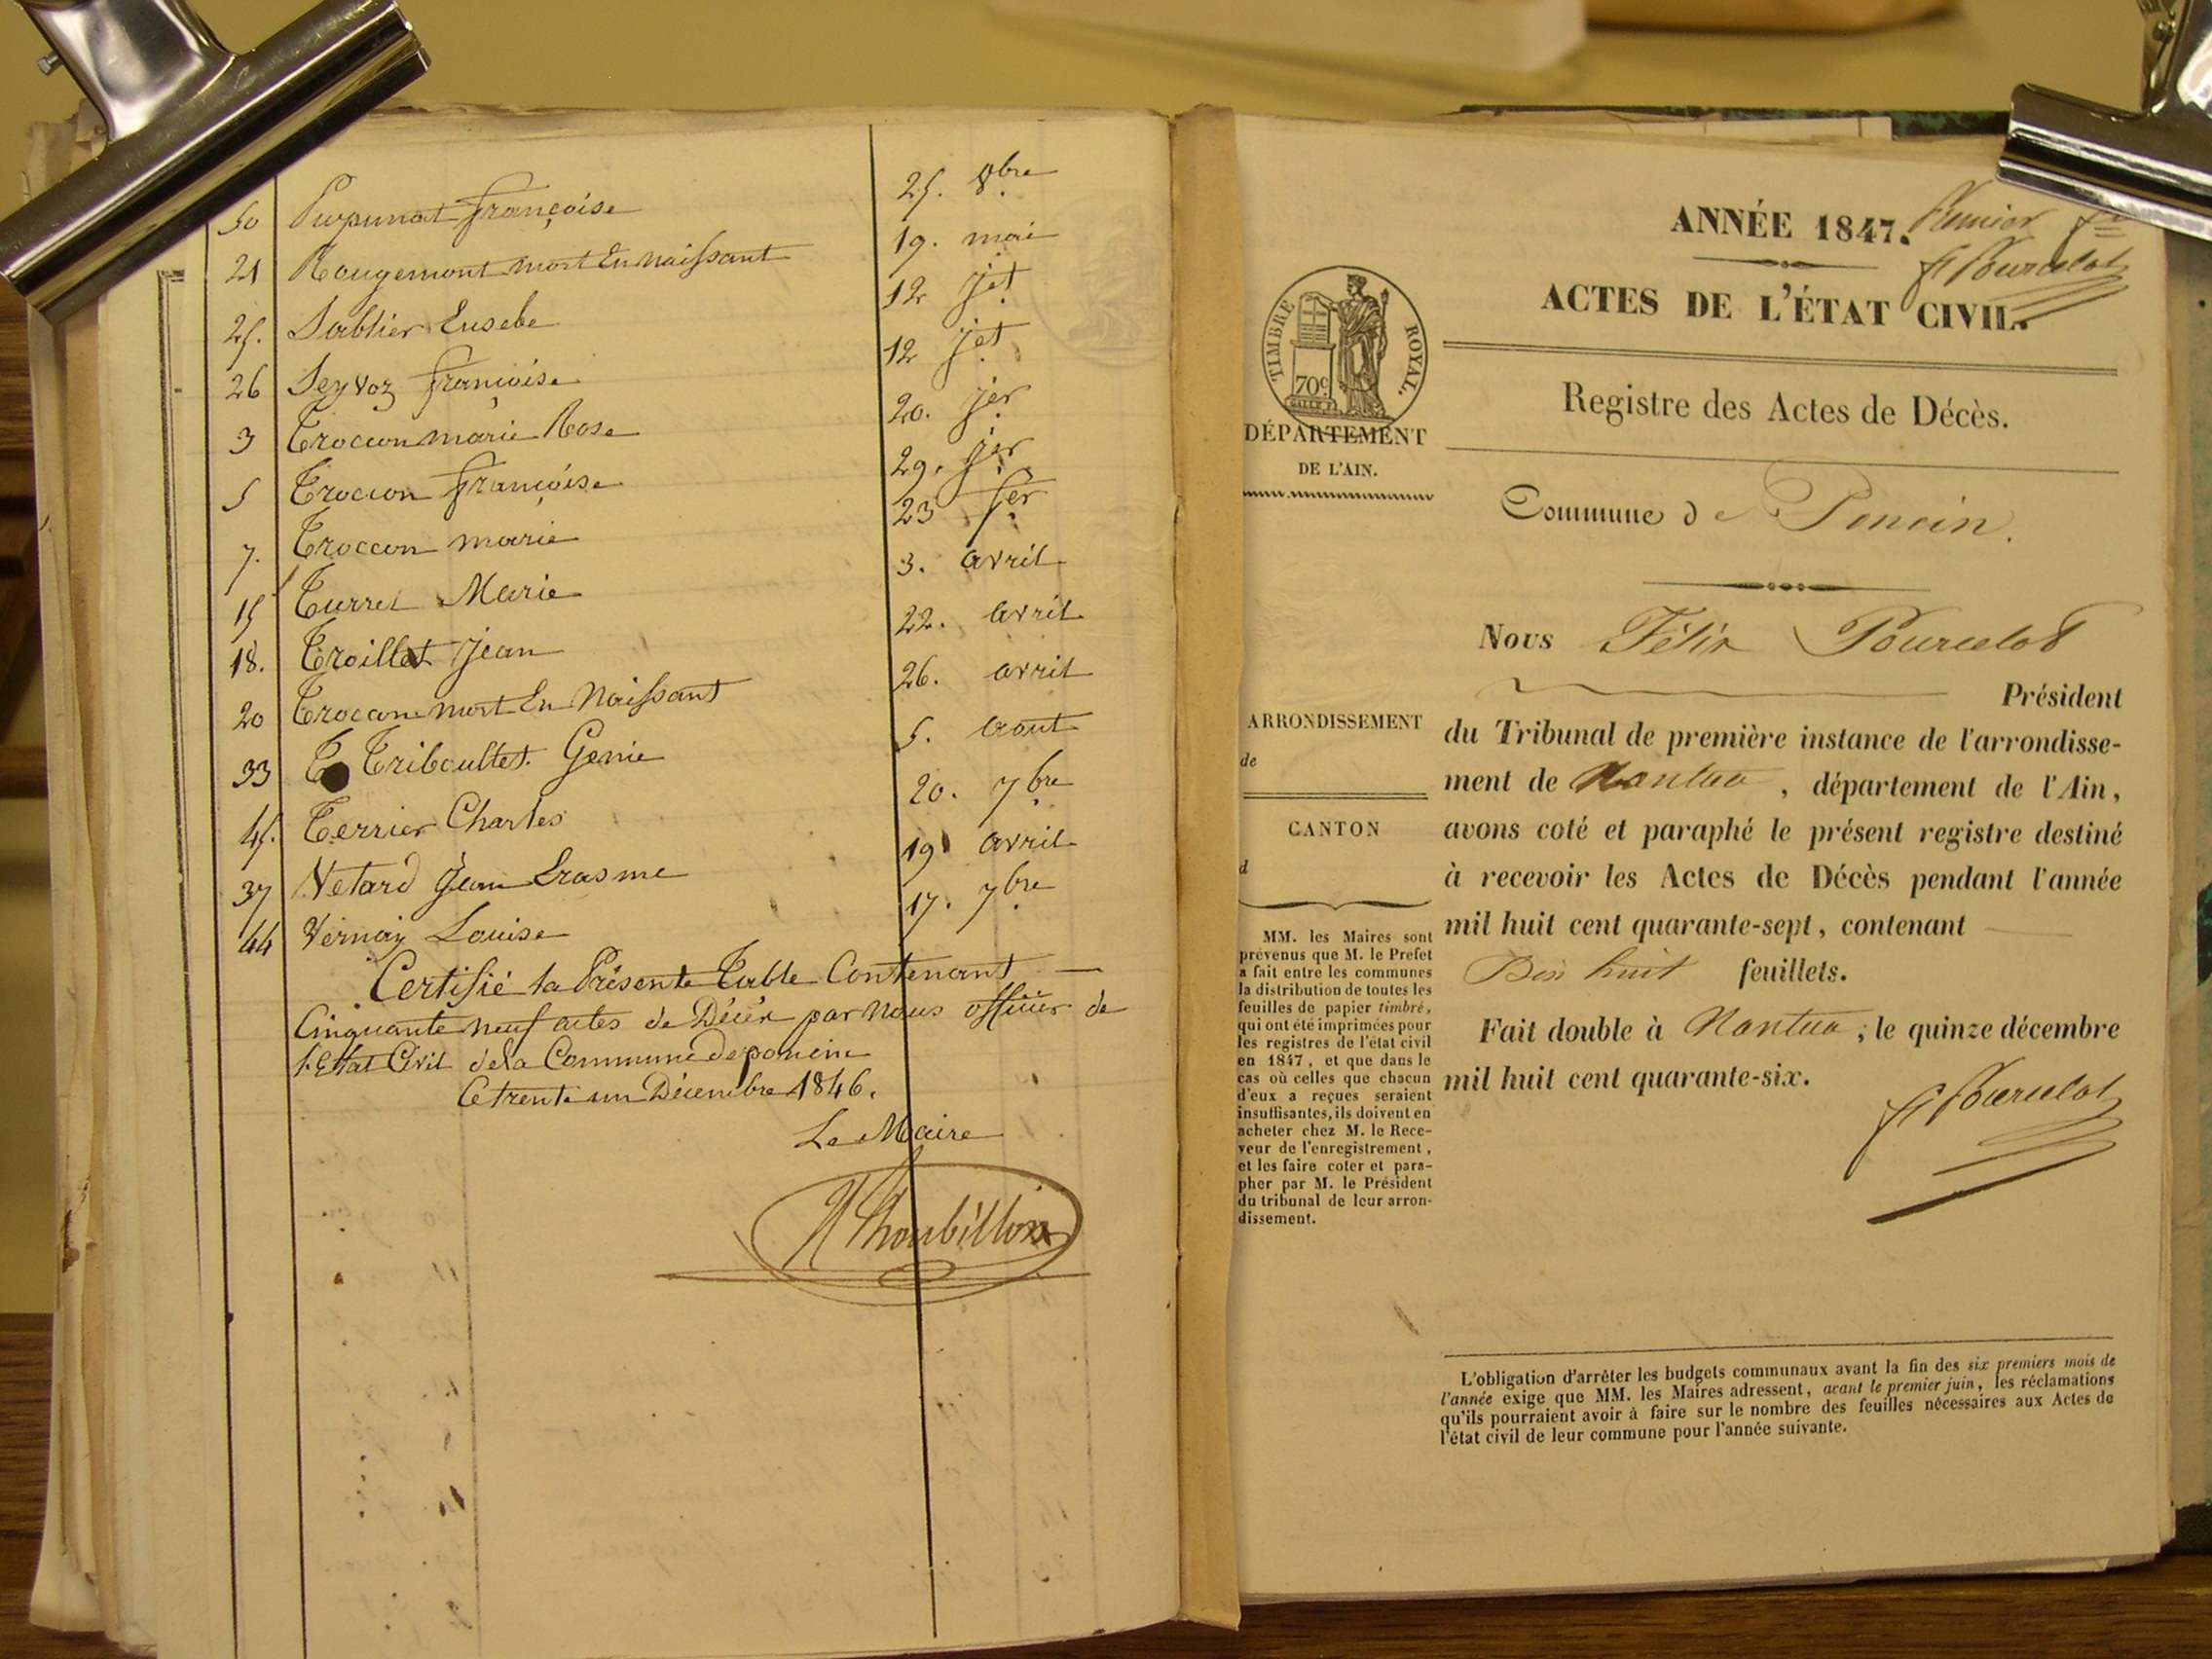 50 Purpunat françoise 25. 8bre
21 Rougemont mort En naissant 19. mai
25. Sablier Eusebe 12 jet
26 Seyvoz françoise 12 jet
3 Troccon marie Rose 20. jer
5 Troccon françoise 29. jer
7. Troccon marie 23 fer
15 Turrel Marie 3. avril
18. Troillet Jean 22. avril
20 Troccon mort En Naissant 26. avril
33 Triboultet Genie 5. aout
45. Terrier Charles 20. 7bre
37 Netard Jean Erasme 19 avril
44 Vernay Louise 17. 7bre
Certifié la Présente Table Contenant
Cinquante neuf actes de Décès par Nous officier de
l'Etat Civil de la Commune de poncin
Ce trente un Décembre 1846.
Le Maire
Thoubillon
ANNÉE 1847. Premier
F Pourcelot
ACTES DE L'ÉTAT CIVIL.
TIMBRE ROYAL.
70c
Registre des Actes de Décès.
DÉPARTEMENT
DE L'AIN.
Commune de Poncin.
Nous Félix Pourcelot
Président
du Tribunal de première instance de l'arrondisse-
ment de Nantua, département de l'Ain,
avons coté et paraphé le présent registre destiné
à recevoir les Actes de Décès pendant l'année
mil huit cent quarante-sept, contenant
Dix huit feuillets.
Fait double à Nantua, le quinze décembre
mil huit cent quarante-six.
F Pourcelot
ARRONDISSEMENT
de
CANTON
d
MM. les Maires sont
prévenus que M. le Préfet
a fait entre les communes
la distribution de toutes les
feuilles de papier timbré,
qui ont été imprimées pour
les registres de l'état civil
en 1847, et que dans le
cas où celles que chacun
d'eux a reçues seraient
insuffisantes, ils doivent en
acheter chez M. le Rece-
veur de l'enregistrement,
et les faire coter et para-
pher par M. le Président
du tribunal de leur arron-
dissement.
L'obligation d'arrêter les budgets communaux avant la fin des six premiers mois de
l'année exige que MM. les Maires adressent, avant le premier juin, les réclamations
qu'ils pourraient avoir à faire sur le nombre des feuilles nécessaires aux Actes de
l'état civil de leur commune pour l'année suivante.